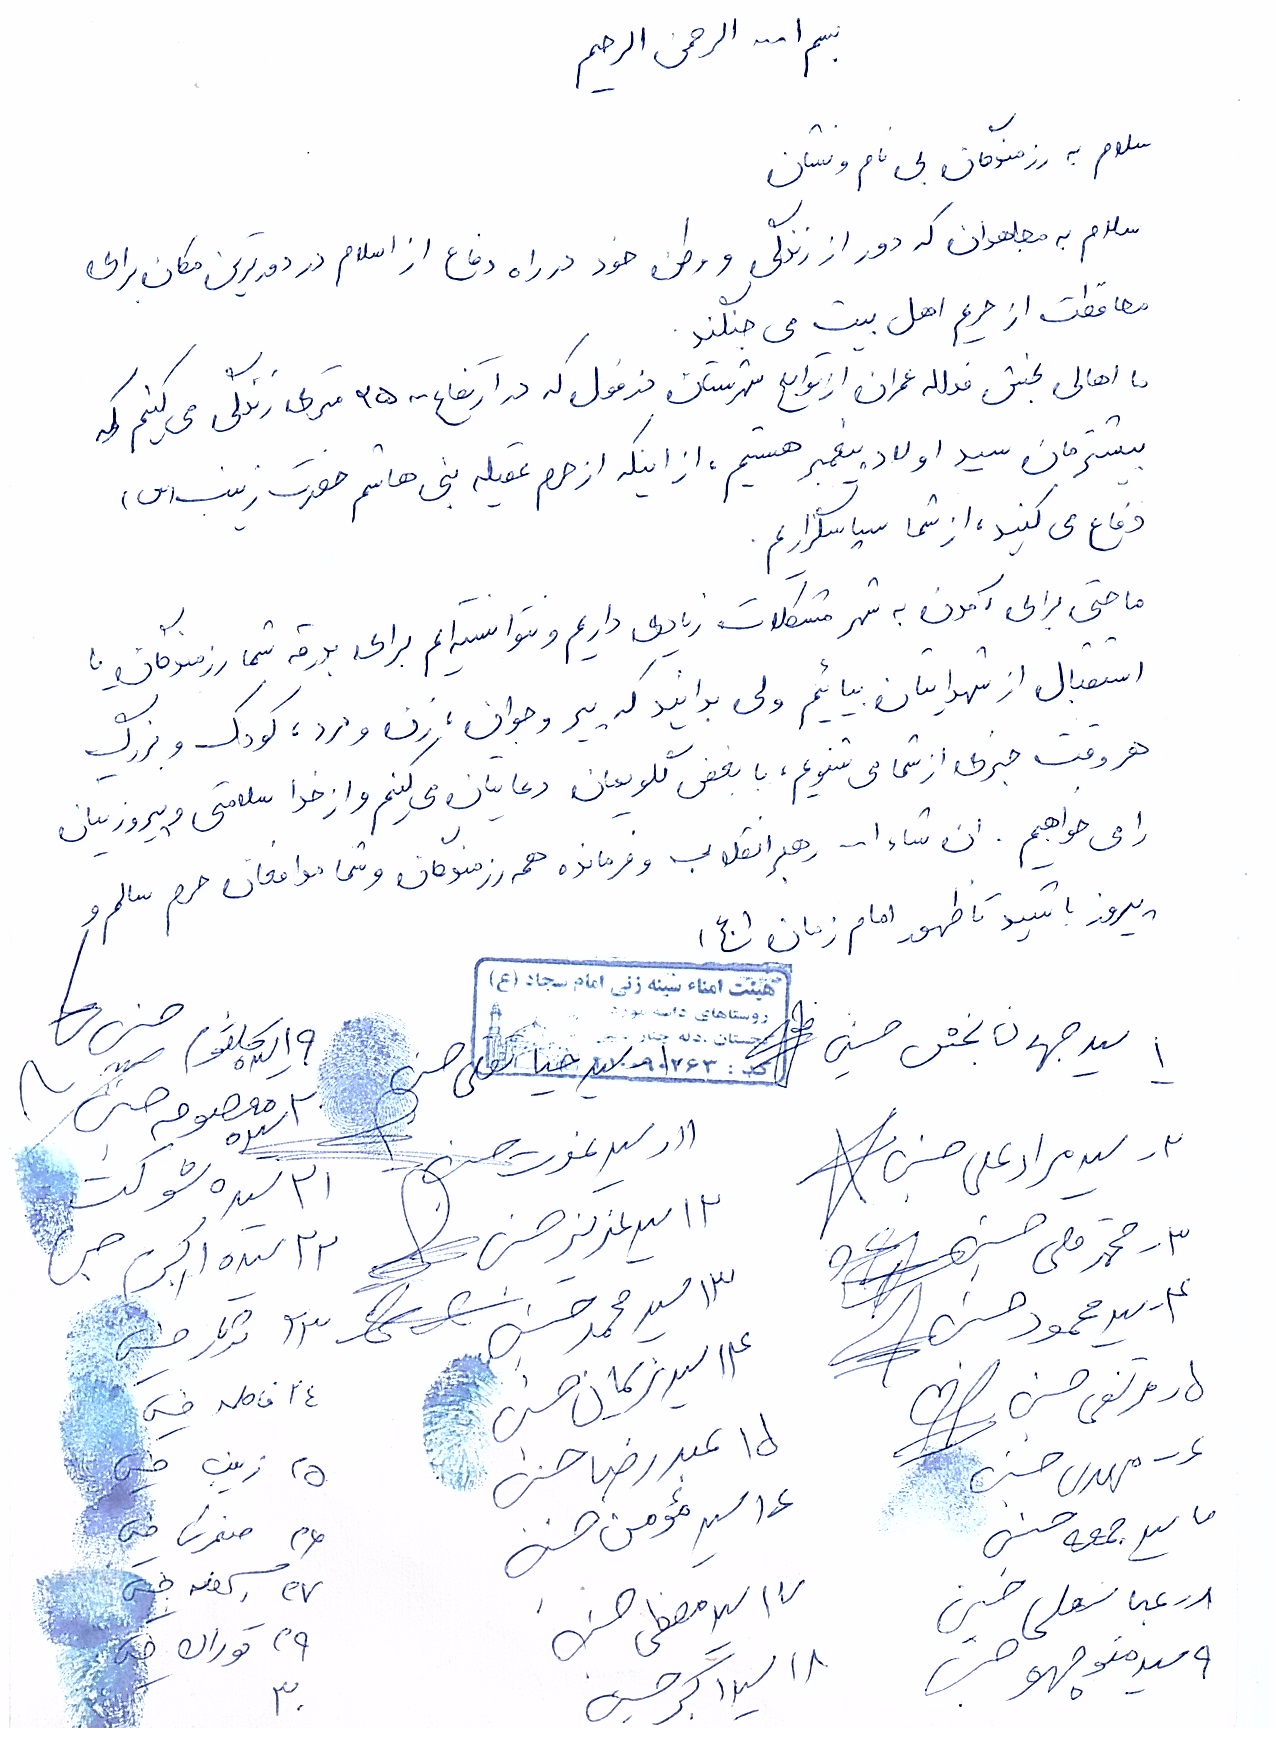 بسم الله الرحمن الرحیم
سلام به رزمندگان بی نام و نشان
سلام به مجاهدان که دور از زندگی و وطن خود در راه دفاع از اسلام در دورترین مکان برای
محافظت از حریم اهل بیت می جنگند.
ما اهالی بخش عمران از توابع شهرستان دزفول که در ارتفاع متری زندگی می کنیم که
بیشترمان سید اولاد پیغمبر هستیم، از اینکه از حرم عقیله بنی هاشم حضرت زینب (س)
دفاع می کنید، از شما سپاسگزاریم.
ما حتی برای آمدن به شهر مشکلات زیادی داریم و نتوانسته ایم برای بدرقه شما رزمندگان یا
استقبال از شهدایتان بیائیم ولی بدانید که پیر و جوان، زن و مرد، کودک و بزرگ
هر وقت خبری از شما می شنویم، با بغض گلویمان دعایتان می کنیم و از خدا سلامتی و پیروزیتان
را می خواهیم. ان شاء ا... رهبر انقلاب و فرمانده همه رزمندگان و شما مدافعان حرم سالم و
پیروز باشید تا ظهور امام زمان (عج)
هیئت امناء سینه زنی امام سجاد (ع)
روستاهای
۱ سید جهانبخش حسینی
۲- سید مراد علی حسینی
۳- محمد قلی حسینی
۴- سید محمود حسینی
۵- مرتضی حسینی
۶- مهدی حسینی
۷ سید جمعه حسینی
۸- عباسعلی حسینی
۹ سید منوچهر حسینی
سید حسینی
۱۱- سید عزت حسینی
۱۲ سید عزیز حسینی
۱۳ سید محمد حسینی
۱۴ سید نریمان حسینی
۱۵ عبدرضا حسینی
۱۶ سید مؤمن حسینی
۱۷ سید مصطفی حسینی
۱۸ سید اکبر حسینی
۱۹ سیده حسینی
۲۰ سیده معصومه حسینی
۲۱ سیده شوکت
۲۲ سیده
۲۳ حسینی
۲۴ حسینی
۲۵ زینب حسینی
۲۶ حسینی
۲۷ حسینی
۲۹ توران حسینی
۳۰